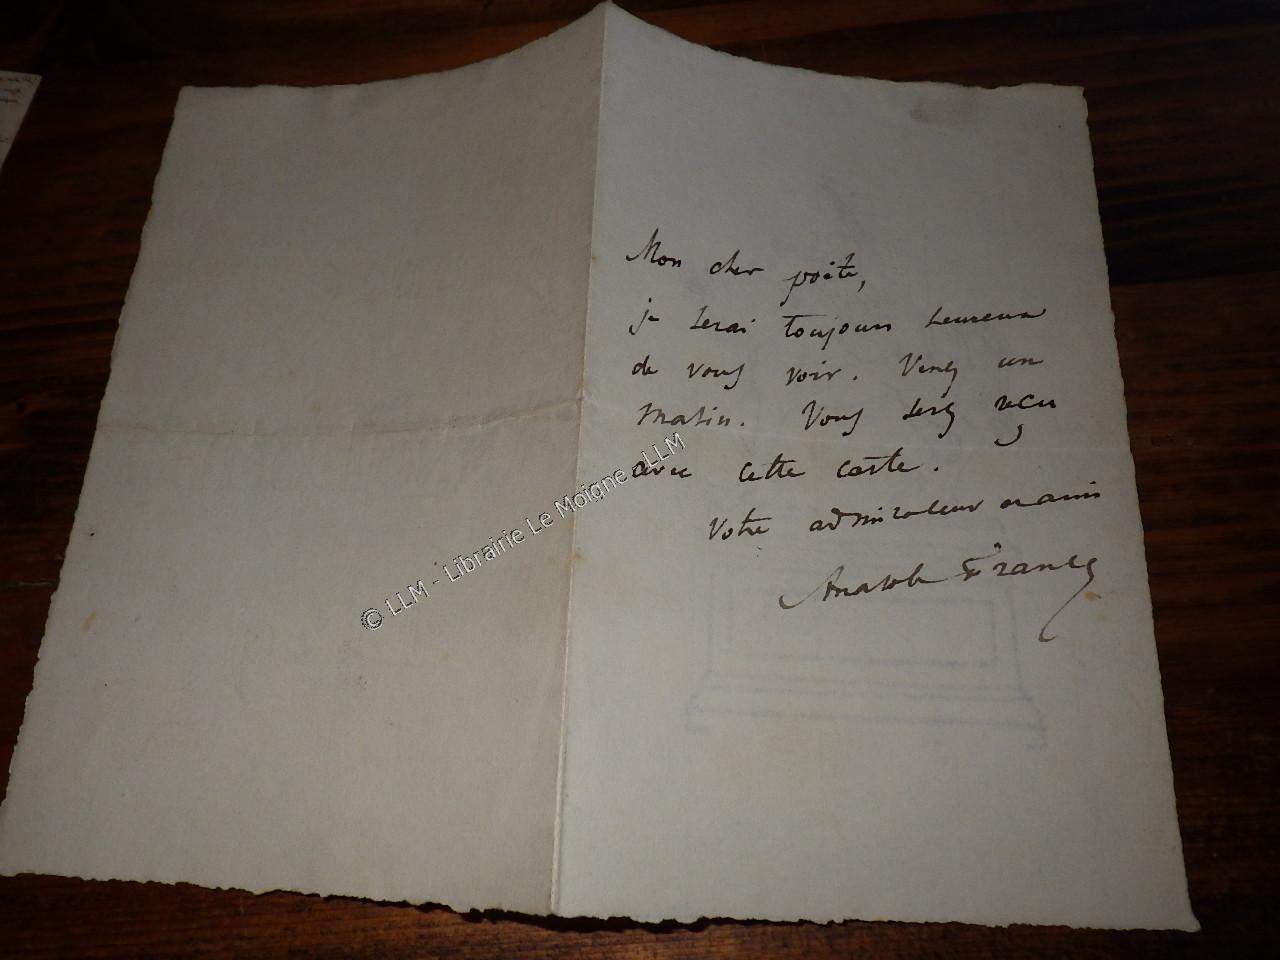 Mon cher poète,
je serai toujours heureux
de vous voir. Venez un
matin. Vous serez reçu
avec cette carte.
Votre admirateur et ami
Anatole France
© LLM - Librairie Le Moigne - LLM